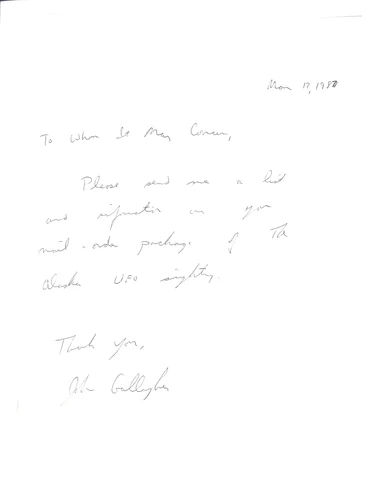 Mar 17, 1987
To Whom It May Concern,
Please send me a list
and information on your
mail-order package of The
Alaska UFO sighting.
Thank you,
John Gallagher